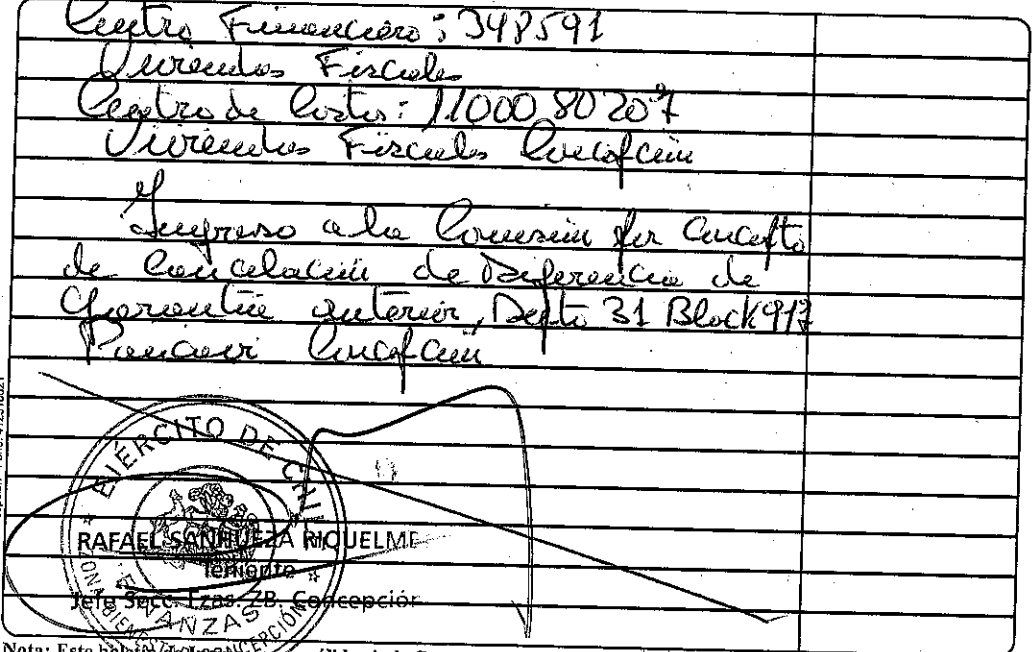 Centro Financiero: 348591
Viviendas Fiscales
Centro de Costos: 1100080207
Viviendas Fiscales Concepción
Ingreso a la Comisión por Concepto
de Cancelación de Diferencia de
Garantía anterior, Depto 31 Block 917
Concepción
EJÉRCITO DE CHILE
RAFAEL SANHUEZA RIQUELME
Teniente
Jefe Secc. Fzas. ZB. Concepción
ZONA BIENESTAR CONCEPCIÓN
FINANZAS
Nota: Este